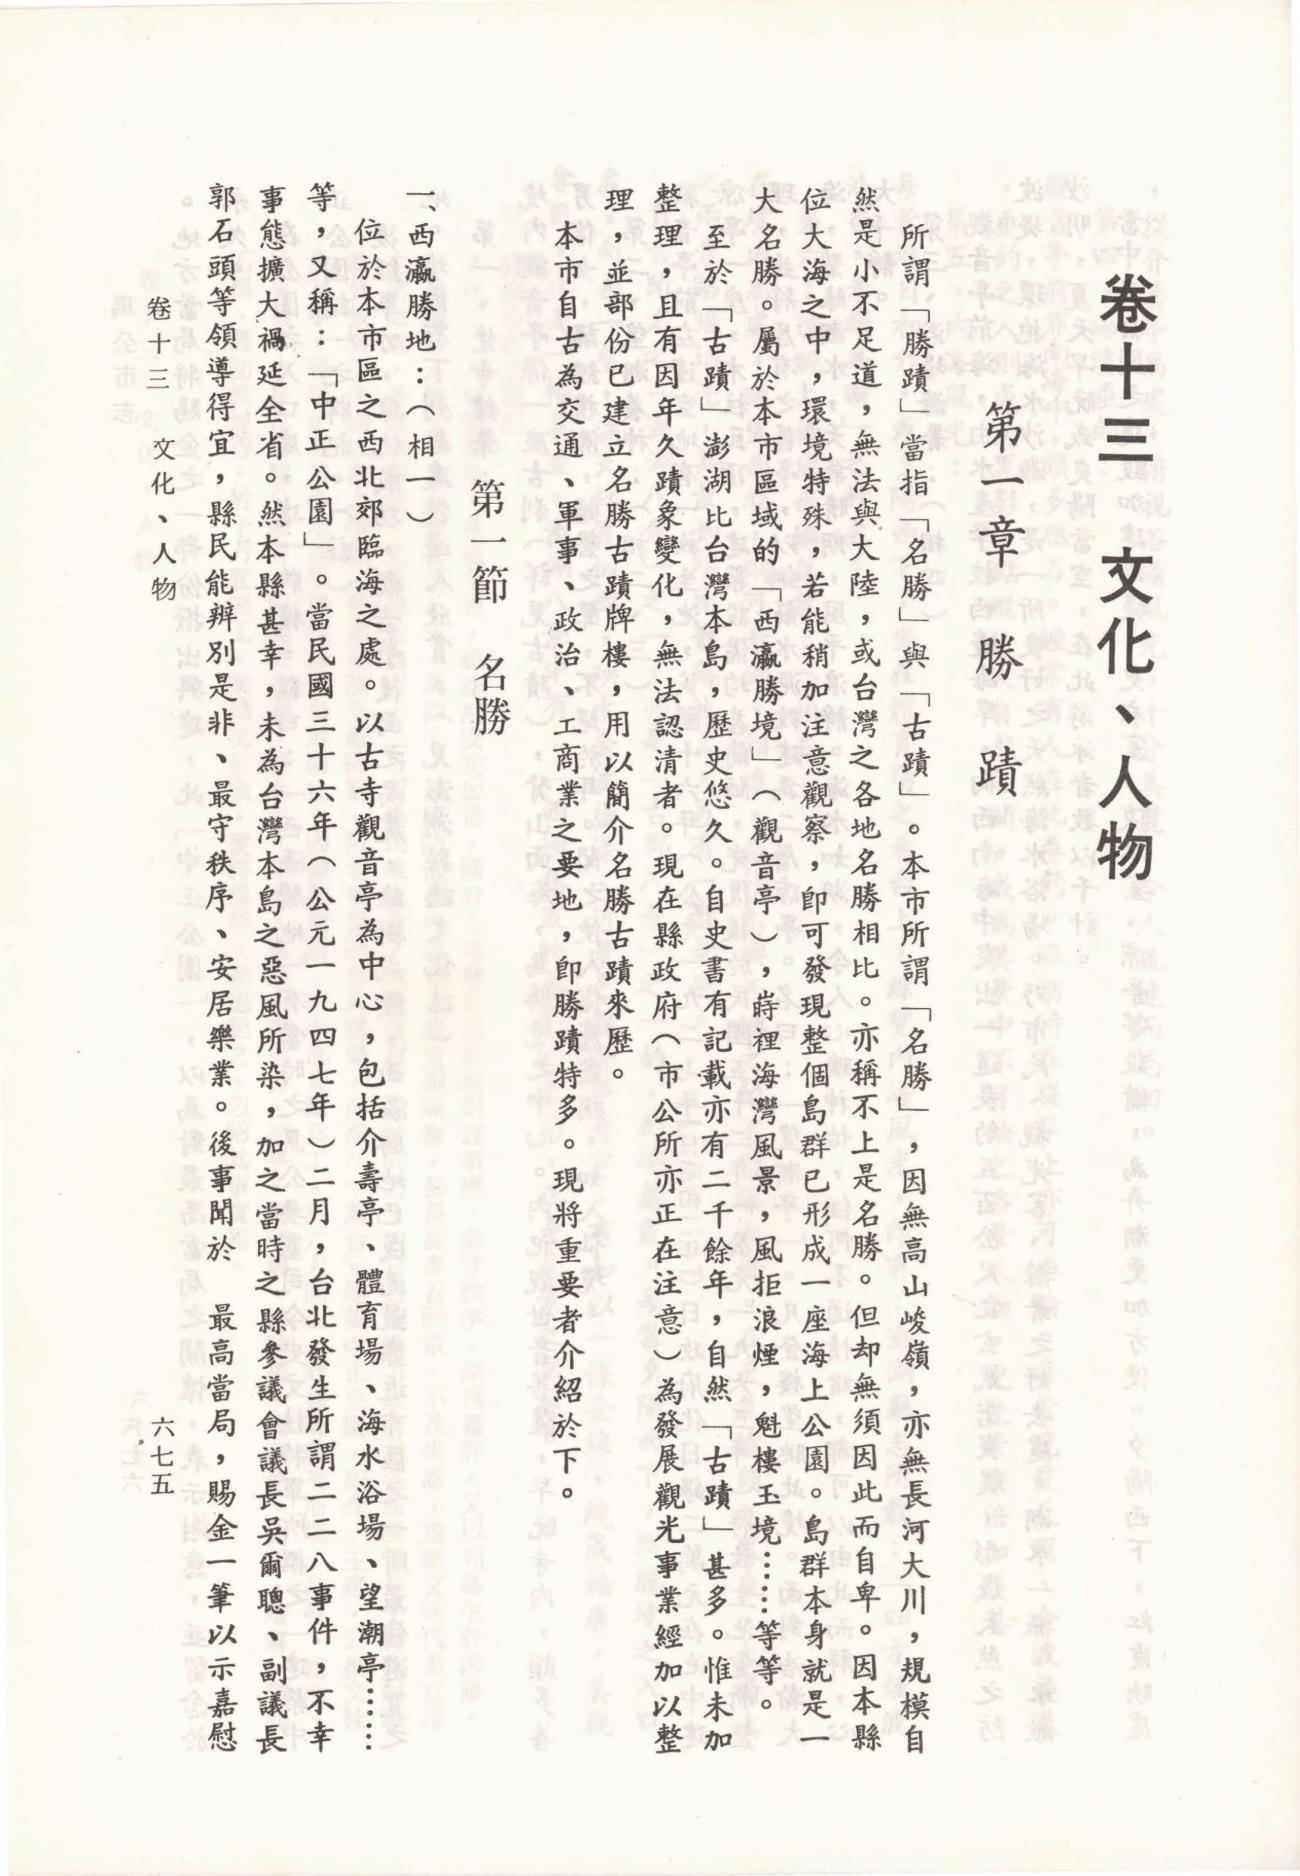 卷十三　文化、人物
第一章　勝　蹟
所謂「勝蹟」當指「名勝」與「古蹟」。本市所謂「名勝」，因無高山峻嶺，亦無長河大川，規模自
然是小不足道，無法與大陸，或台灣之各地名勝相比。亦稱不上是名勝。但却無須因此而自卑。因本縣
位大海之中，環境特殊，若能稍加注意觀察，卽可發現整個島群已形成一座海上公園。島群本身就是一
大名勝。屬於本市區域的「西瀛勝境」（觀音亭），蒔裡海灣風景，風拒浪煙，魁樓玉境……等等。
至於「古蹟」澎湖比台灣本島，歷史悠久。自史書有記載亦有二千餘年，自然「古蹟」甚多。惟未加
整理，且有因年久蹟象變化，無法認清者。現在縣政府（市公所亦正在注意）為發展觀光事業經加以整
理，並部份已建立名勝古蹟牌樓，用以簡介名勝古蹟來歷。
本市自古為交通、軍事、政治、工商業之要地，卽勝蹟特多。現將重要者介紹於下。
第一節　名勝
一、西瀛勝地：（相一）
位於本市區之西北郊臨海之處。以古寺觀音亭為中心，包括介壽亭、體育場、海水浴場、望潮亭……
等，又稱：「中正公園」。當民國三十六年（公元一九四七年）二月，台北發生所謂二二八事件，不幸
事態擴大禍延全省。然本縣甚幸，未為台灣本島之惡風所染，加之當時之縣參議會議長吳爾聰、副議長
郭石頭等領導得宜，縣民能辨別是非、最守秩序、安居樂業。後事聞於　最高當局，賜金一筆以示嘉慰
卷十三　文化、人物
六七五